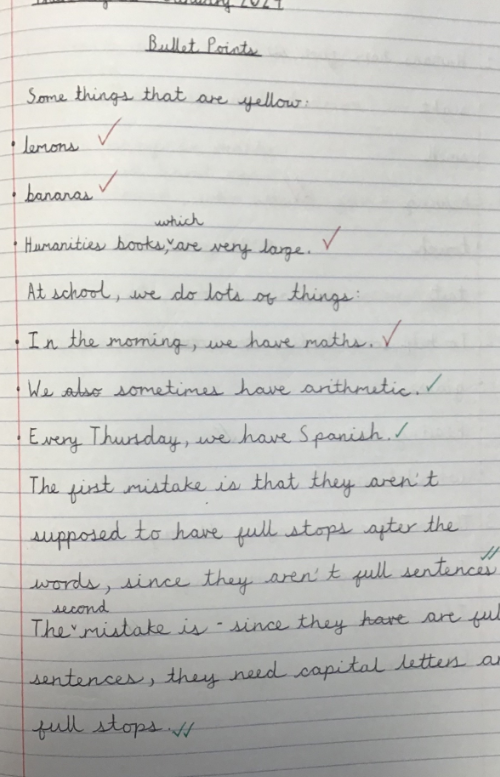 Bullet Points
Some things that are yellow:
• lemons
• bananas
which
• Humanities books, are very large.
At school, we do lots of things:
• In the morning, we have maths.
• We also sometimes have arithmetic.
• Every Thursday, we have Spanish.
The first mistake is that they aren't
supposed to have full stops after the
words, since they aren't full sentences
second
The mistake is - since they have are
sentences, they need capital letters
full stops.